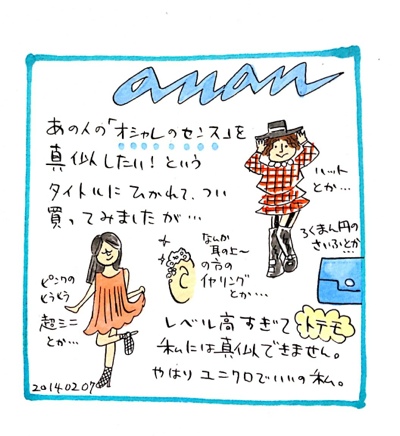 anan
あの人の「オシャレのセンス」を
真似したい！という
タイトルにひかれて、つい
買ってみましたが…
ハット
とか…
ろくまん円の
さいふとか…
なんか
耳の上〜
の方の
イヤリング
とか…
ピンクの
どうどう
超ミニ
とか…
レベル高すぎてトテモ
私には真似できません。
やはりユニクロでいいの私。
2014.02.07